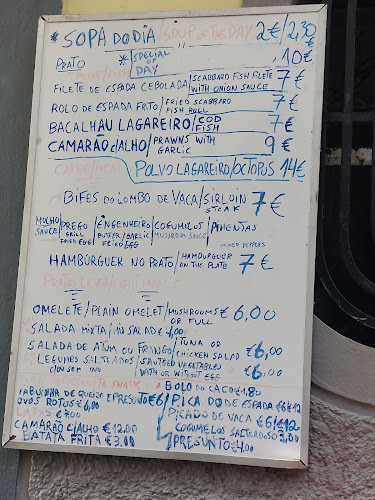 * SOPA DO DIA / SOUP OF THE DAY 2€ / 2,30 €
PRATO * / SPECIAL OF DAY 10€
FISH
FILETE DE ESPADA CEBOLADA / SCABBARD FISH FILETE WITH ONION SAUCE 7€
ROLO DE ESPADA FRITO / FRIED SCABBARD FISH ROLL 7€
BACALHAU LAGAREIRO / COD FISH 7€
CAMARÃO C/ALHO / PRAWNS WITH GARLIC 9€
POLVO LAGAREIRO / OCTOPUS 14€
CARNE / MEAT
BIFES DO LOMBO DE VACA / SIRLOIN STEAK 7€
MOLHO SAUCE / PREGO GRILL FRIED EGG / ENGENHEIRO BUTTER/GARLIC FRIED EGG / COGUMELOS MUSHROOM SAUCE / PIMENTAS MIXED PEPPERS
HAMBÚRGUER NO PRATO / HAMBURGUER ON THE PLATE 7€
PRATOS LEVES / LIGHT MEALS
OMELETE / PLAIN OMELET / MUSHROOMS OR FULL €6,00
SALADA MIXTA / MIX SALAD €4,00
SALADA DE ATUM OU FRANGO / TUNA OR CHICKEN SALAD €6,00
LEGUMES SALTEADOS C/OU SEM OVO / SAUTEED VEGETABLES WITH OR WITHOUT EGG €6,00
SNACK
TABUINHA DE QUEIJO E PRESUNTO €6 / BOLO DO CACO €1,80
OVOS ROTOS €6,00 / PICADO DE ESPADA €6 €12
LAPAS
PICADO DE VACA €6 €12
CAMARÃO C/ALHO €12,00 COGUMELOS SALTEADOS
BATATA FRITA €3,00 PRESUNTO €4,00